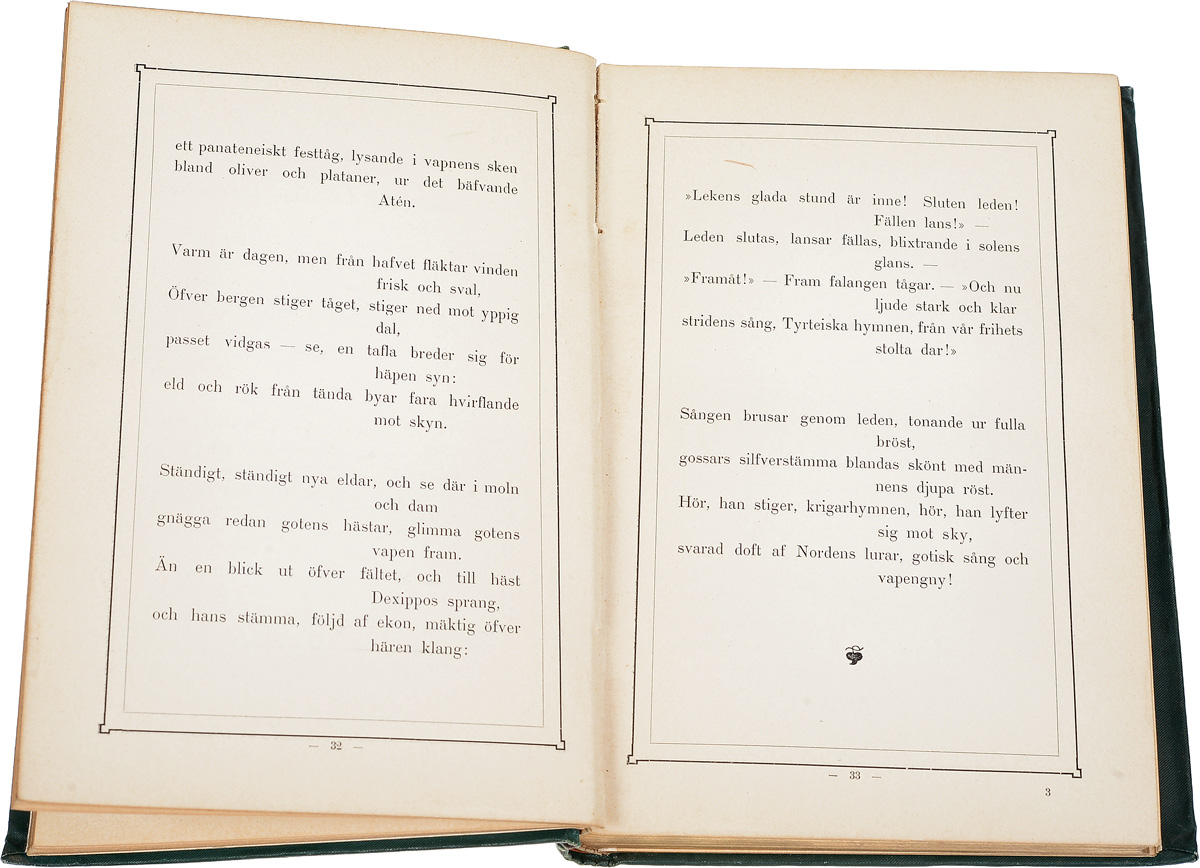 ett panateneiskt festtåg, lysande i vapnens sken
bland oliver och plataner, ur det bäfvande
Atén.
Varm är dagen, men från hafvet fläktar vinden
frisk och sval,
Öfver bergen stiger tåget, stiger ned mot yppig
dal,
passet vidgas — se, en tafla breder sig för
häpen syn:
eld och rök från tända byar fara hvirflande
mot skyn.
Ständigt, ständigt nya eldar, och se där i moln
och dam
gnägga redan gotens hästar, glimma gotens
vapen fram.
Än en blick ut öfver fältet, och till häst
Dexippos sprang,
och hans stämma, följd af ekon, mäktig öfver
hären klang:
— 32 —
»Lekens glada stund är inne! Sluten leden!
Fällen lans!» —
Leden slutas, lansar fällas, blixtrande i solens
glans. —
»Framåt!» — Fram falangen tågar. — »Och nu
ljude stark och klar
stridens sång, Tyrteiska hymnen, från vår frihets
stolta dar!»
Sången brusar genom leden, tonande ur fulla
bröst,
gossars silfverstämma blandas skönt med män-
nens djupa röst.
Hör, han stiger, krigarhymnen, hör, han lyfter
sig mot sky,
svarad doft af Nordens lurar, gotisk sång och
vapengny!
— 33 —
3